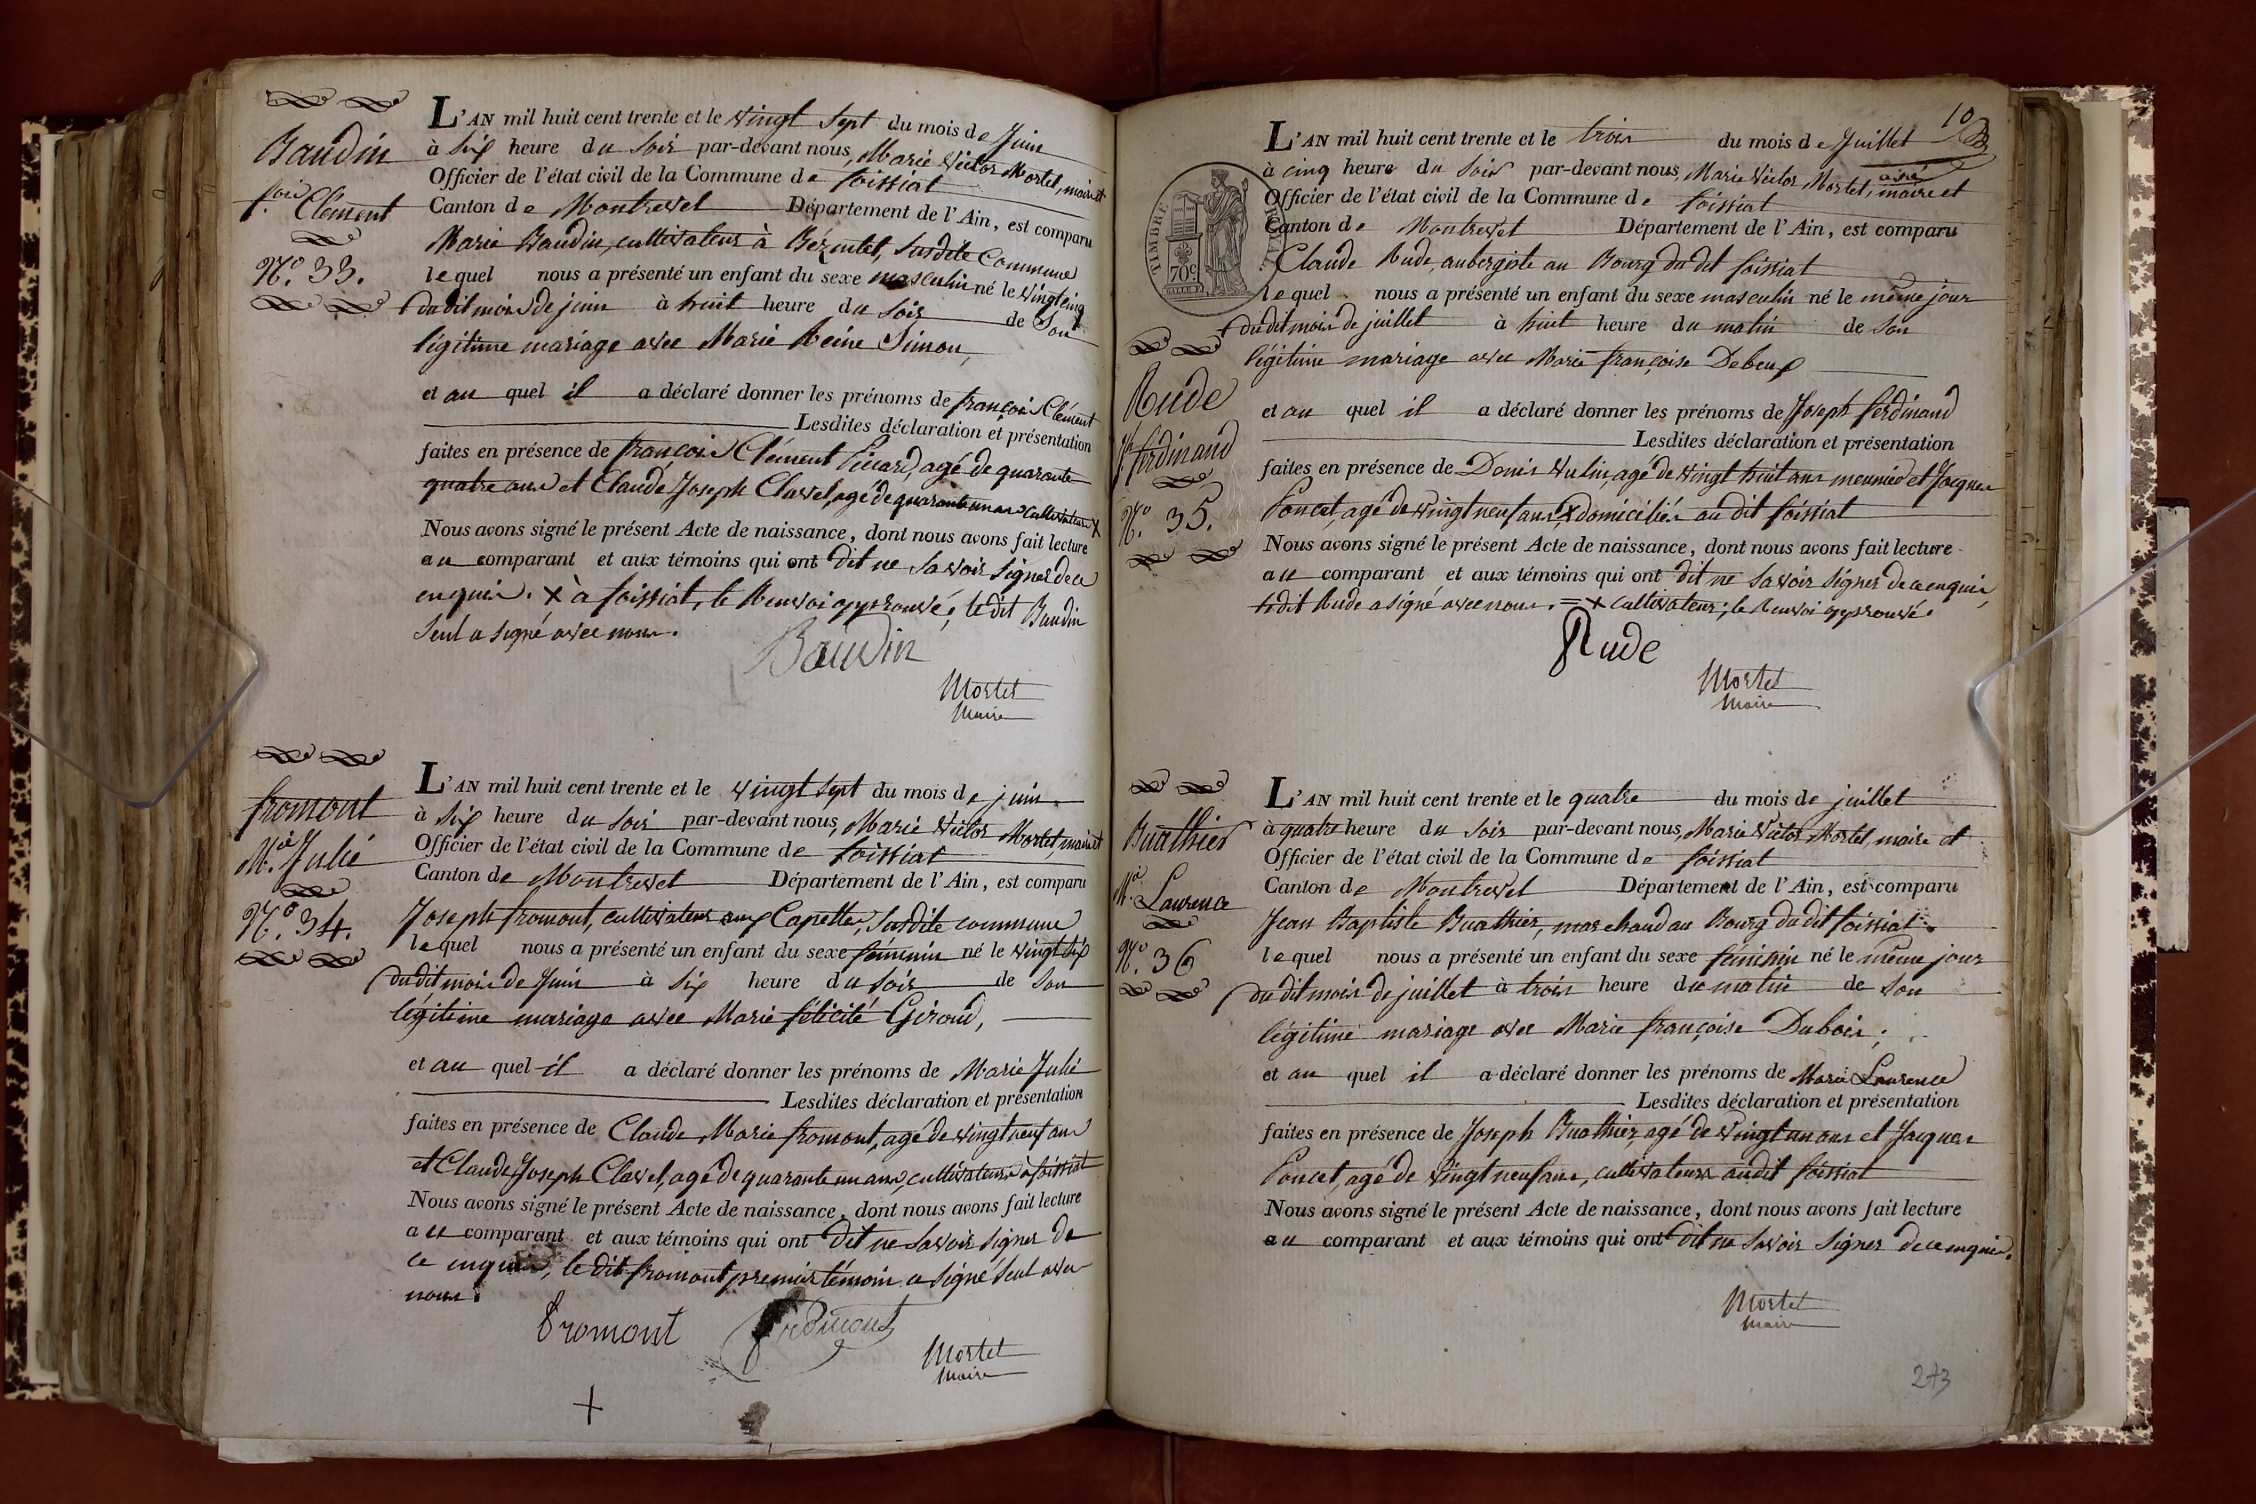 Baudin
fois Clément
N.o 33.
L'AN mil huit cent trente et le vingt sept du mois de Juin
à six heure du soir par-devant nous, Marie Victor Mortel, maire et
Officier de l'état civil de la Commune de foissiat
Canton de Montrevel Département de l'Ain, est comparu
Marie Baudin, cultivateur à Bézentet, susdite Commune
lequel nous a présenté un enfant du sexe masculin né le vingt cinq
du dit mois de juin à huit heure du soir de Son
légitime mariage avec Marie Reine Simon,
et au quel il a déclaré donner les prénoms de françois Clément
Lesdites déclaration et présentation
faites en présence de françois Clément Piccard, agé de quarante
quatre ans et Claude Joseph Clavel, agé de quarante un ans cultivateurs X
Nous avons signé le présent Acte de naissance, dont nous avons fait lecture
au comparant et aux témoins qui ont dit ne savoir signer de ce
enquis. X à foissiat, le Renvoi approuvé; le dit Baudin
seul a signé avec nous.
Baudin
Mortel
Maire
fromont
M.ie Julie
N.o 34.
L'AN mil huit cent trente et le vingt sept du mois de juin
à six heure du soir par-devant nous, Marie Victor Mortel, maire et
Officier de l'état civil de la Commune de foissiat
Canton de Montrevel Département de l'Ain, est comparu
Joseph fromont, cultivateur aux Capettes, susdite commune
lequel nous a présenté un enfant du sexe féminin né le vingt six
du dit mois de Juin à six heure du soir de son
légitime mariage avec Marie félicité Giroud,
et au quel il a déclaré donner les prénoms de Marie Julie
Lesdites déclaration et présentation
faites en présence de Claude Marie fromont, agé de vingt neuf ans
et Claude Joseph Clavel, agé de quarante un ans, cultivateurs à foissiat
Nous avons signé le présent Acte de naissance, dont nous avons fait lecture
au comparant et aux témoins qui ont dit ne savoir signer de
ce enquis, le dit fromont premier témoin a signé seul avec
nous.
Fromont
Mortel
Maire
10
TIMBRE ROYAL
70c
L'AN mil huit cent trente et le trois du mois de Juillet
à cinq heure du soir par-devant nous, Marie Victor Mortel, maire et
Officier de l'état civil de la Commune de foissiat
Canton de Montrevel Département de l'Ain, est comparu
Claude Rude, aubergiste au Bourg du dit foissiat
lequel nous a présenté un enfant du sexe masculin né le même jour
du dit mois de juillet à huit heure du matin de son
légitime mariage avec Marie françoise Debeuf
Rude
Jh ferdinand
N.o 35.
et au quel il a déclaré donner les prénoms de Joseph ferdinand
Lesdites déclaration et présentation
faites en présence de Denis Vulin, agé de vingt huit ans meunier et Jacques
Poncet, agé de vingt neuf ans X domiciliés au dit foissiat
Nous avons signé le présent Acte de naissance, dont nous avons fait lecture
au comparant et aux témoins qui ont dit ne savoir signer de ce enquis,
le dit Rude a signé avec nous. = X cultivateur; le Renvoi approuvé.
Rude
Mortel
Maire
Buathier
M.ie Laurence
N.o 36
L'AN mil huit cent trente et le quatre du mois de juillet
à quatre heure du soir par-devant nous, Marie Victor Mortel, maire et
Officier de l'état civil de la Commune de foissiat
Canton de Montrevel Département de l'Ain, est comparu
Jean Baptiste Buathier, marchand au Bourg du dit foissiat.
lequel nous a présenté un enfant du sexe féminin né le même jour
du dit mois de juillet à trois heure du matin de son
légitime mariage avec Marie françoise Dubois,
et au quel il a déclaré donner les prénoms de Marie Laurence
Lesdites déclaration et présentation
faites en présence de Joseph Buathier, agé de vingt un ans et Jacques
Poncet, agé de vingt neuf ans, cultivateurs au dit foissiat
Nous avons signé le présent Acte de naissance, dont nous avons fait lecture
au comparant et aux témoins qui ont dit ne savoir signer de ce enquis.
Mortel
Maire
243